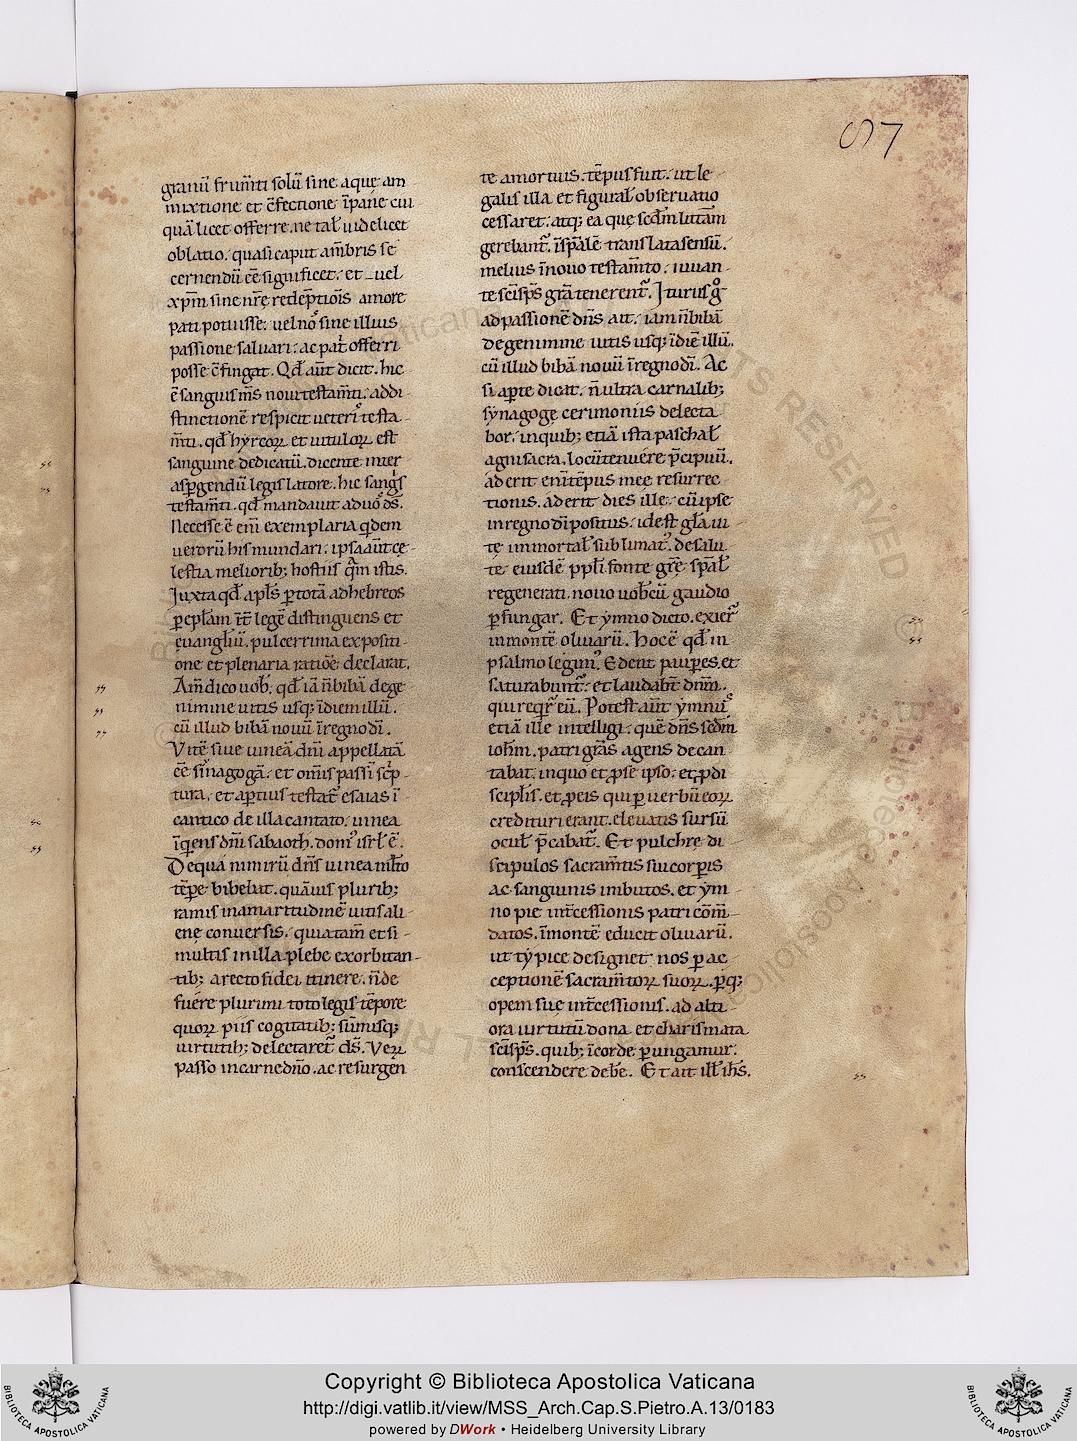 87
granū frum̄ti solū sine aquę am
mixtione et c̄fectione īpane cui
quā licet offerre. ne tal' uidelicet
oblatio. quasi caput am̄bris se
cernendū ēē significet. et uel
xp̄m sine nr̄e redēptiōis amore
pati potuisse. uel nos sine illius
passione saluari. ac pat' offerri
posse c̄fingat. Qd' aūt dicit. hic
ē sanguis m̄s noui testam̄ti. ad di
stinctionē respicit ueteris testa
m̄ti. qd' hyrcoꝝ et uituloꝝ est
sanguine dedicatū. dicente inter
asꝑgendū legislatore. hic sanguis
testam̄ti. qd' mandauit ad uos ds̄.
Necesse ē em̄ exemplaria qdem
ueroru his mundari. ipsa aūt cę
lestia meliorib; hostiis qm̄ istis.
Iuxta qd' apls̄ ꝑ totā ad hebreos
ꝑ epl'am int' legē distinguens et
euangl'iū. pulcerrima expositi
one et plenaria ratiōe declarat.
Am̄ dico uob'. qd' iā n̄ bibā de ge
nimine uitis usq; ī diem illū.
cū illud bibā nouū ī regno di.
Vitē siue uineā dn̄i appellatā
ēē sinagogā. et om̄is passī sc'p
tura. et aꝑtius testat' esaias ī
cantico de illa cantato. uinea
īquiens dn̄i sabaoth. dom' isrl' ē.
De qua nimirū dn̄s uinea ml'to
tēpe bibebat. quāuis plurib;
ramis in amaritudinē uitis ali
enę conuersis. quia tam̄ et si
multis in illa plebe exorbitan
tib; a recto fidei itinere. n̄ de
fuere plurimi toto legis tēpore
quoꝝ piis cogitatib; sūmisq;
uirtutib; delectaret' ds̄. Veꝝ
passo in carne dn̄o. ac resurgen
te a mortuis. tēpus fuit. ut le
galis illa et figural' obseruatio
cessaret. atq; ea quę scd'm litt'am
gerebant'. ī spālē translata sensū.
melius ī nouo testam̄to. iuuan
te sc̄i sps̄ gr̄a tenerent'. Iturus g°
ad passionē dn̄s ait. iam n̄ bibā
de genimine uitis usq; ī diē illū.
cū illud bibā nouū ī regno di. Ac
si aꝑte dicat. n̄ ultra carnalib;
synagogę cerimoniis delecta
bor. in quib; etiā ista paschal'
agni sacra. locū tenuere p̄cipuū.
aderit em̄ tēpus meę resurrec
tionis. aderit dies ille. cū ipse
in regno di positus. id est gl'a ui
tę inmortal' sublimat'. de salu
te eiusdē ppl'i. fonte gr̄ę sp̄al'
regenerati. nouo uob'cū gaudio
ꝑfungar. Et ymno dicto. exier'
in montē oliuarū. Hoc ē qd' in
psalmo legim'. Edent pauꝑes. et
saturabunt'. et laudab't dn̄m.
qui reqr' eū. Potest aūt ymnus
etiā ille intelligi. quē dn̄s scd'm
ioh'm. patri gr̄as agens decan
tabat. in quo et ꝓ se ipso. et ꝓ di
scipl'is. et ꝓ eis qui ꝑ uerbū eoꝝ
credituri erant. eleuatis sursū
ocul' p̄cabat'. Et pulchre di
scipulos sacram̄tis sui corꝑis
ac sanguinis imbutos. et ym
no pie int'cessionis patri com̄
datos. ī montē educit oliuarū.
ut typice designet nos ꝑ ac
ceptionē sacram̄toꝝ suoꝝ. ꝑq;
opem suę int'cessionis. ad alti
ora uirtutū dona et charismata
sc̄i sps̄. quib; ī corde ꝑungamur.
conscendere deb'e. Et ait ill' ih̄s.
Copyright © Biblioteca Apostolica Vaticana
http://digi.vatlib.it/view/MSS_Arch.Cap.S.Pietro.A.13/0183
powered by DWork • Heidelberg University Library
BIBLIOTECA APOSTOLICA VATICANA
BIBLIOTECA APOSTOLICA VATICANA